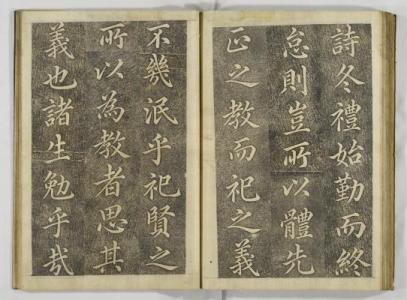 詩冬禮始勤而終
怠則豈所以體先
正之教而祀之義
不幾泯乎祀賢之
所以為教者思其
義也諸生勉乎哉